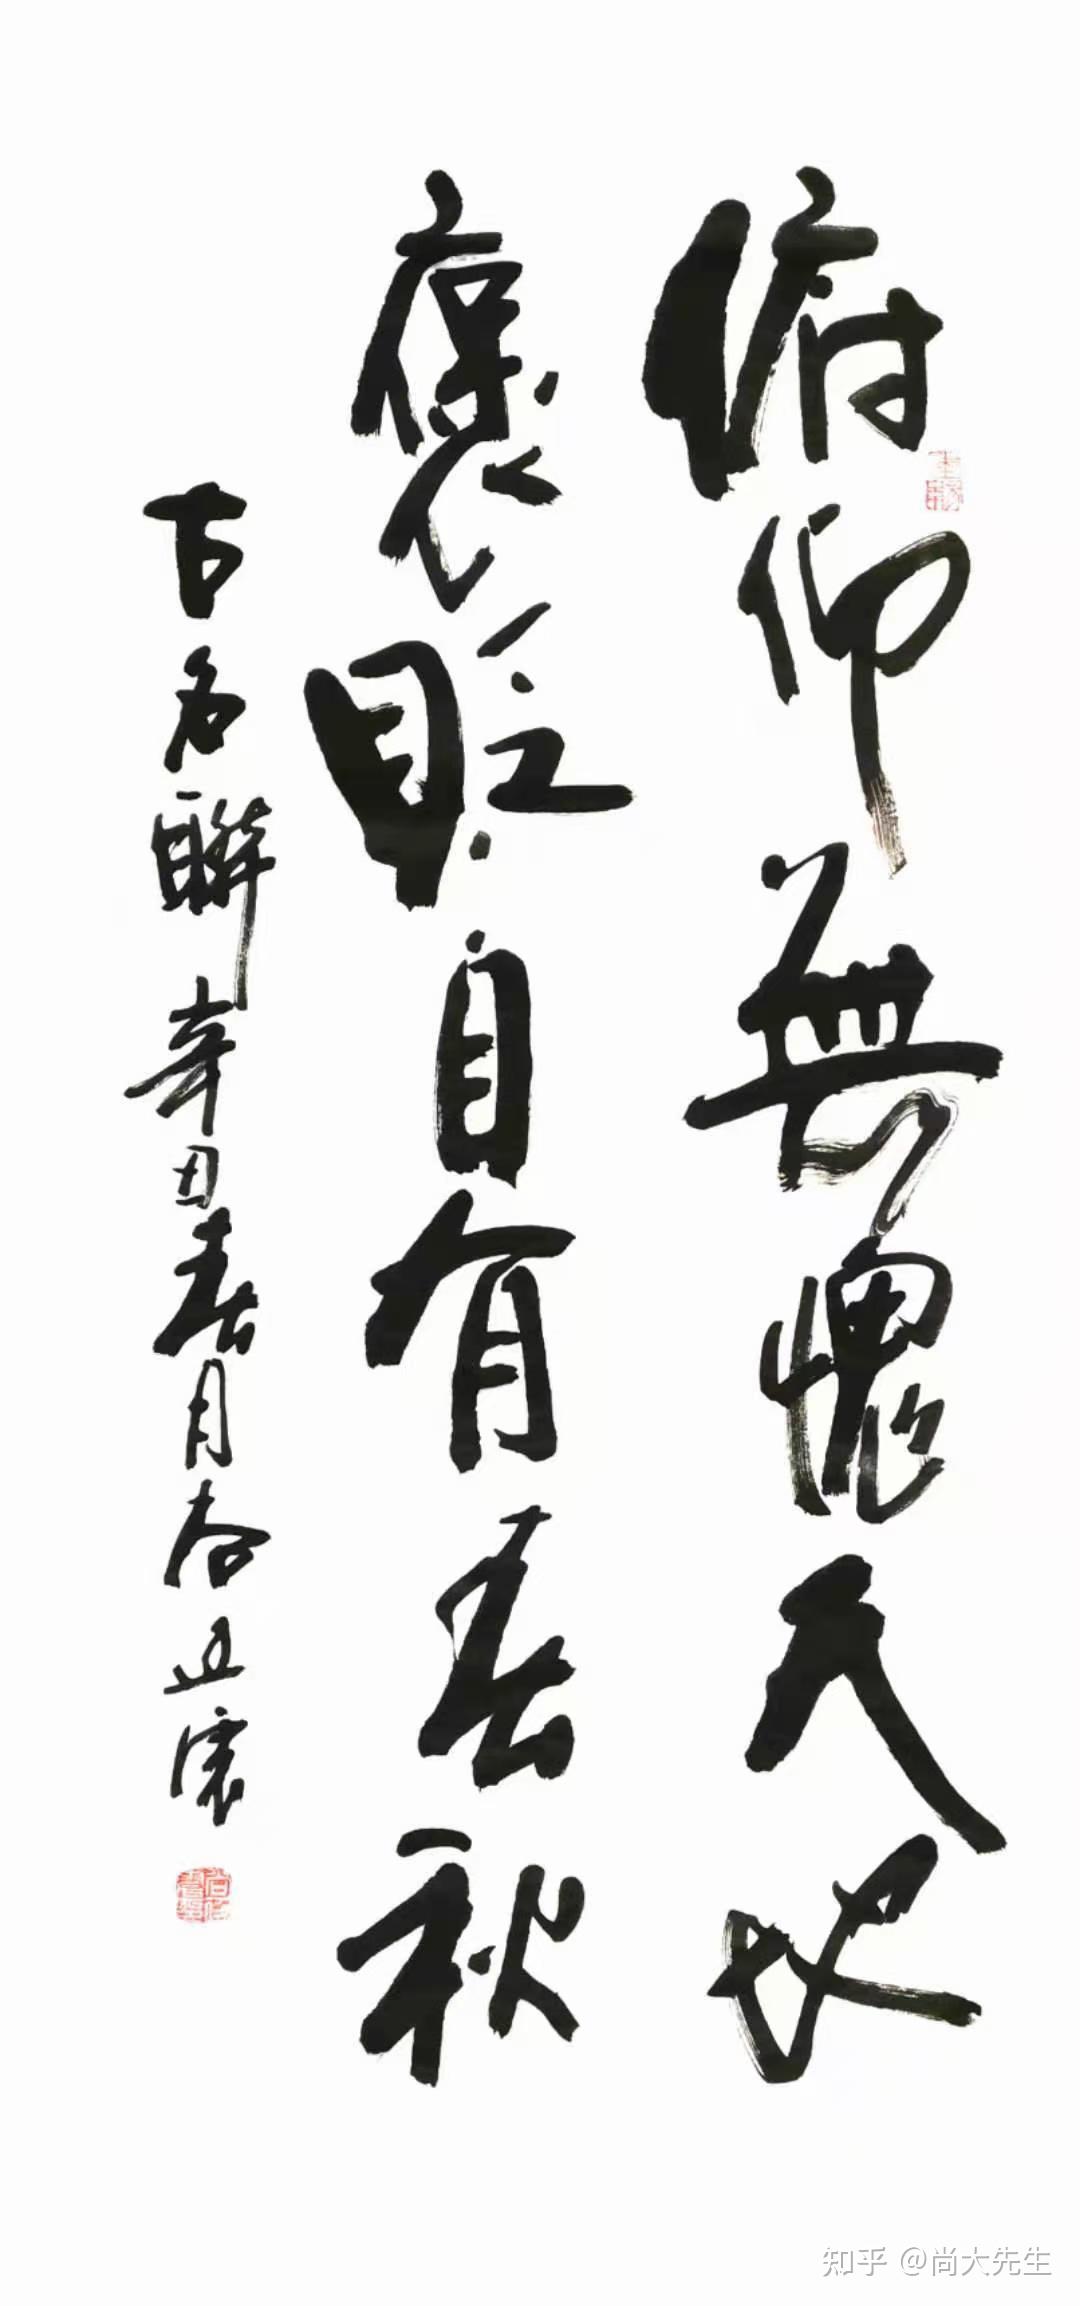 俯仰無愧天地
褒貶自有春秋
古名聯辛丑春月尚正懷
知乎 @尚大先生